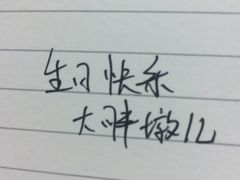 生日快乐
大胖墩儿